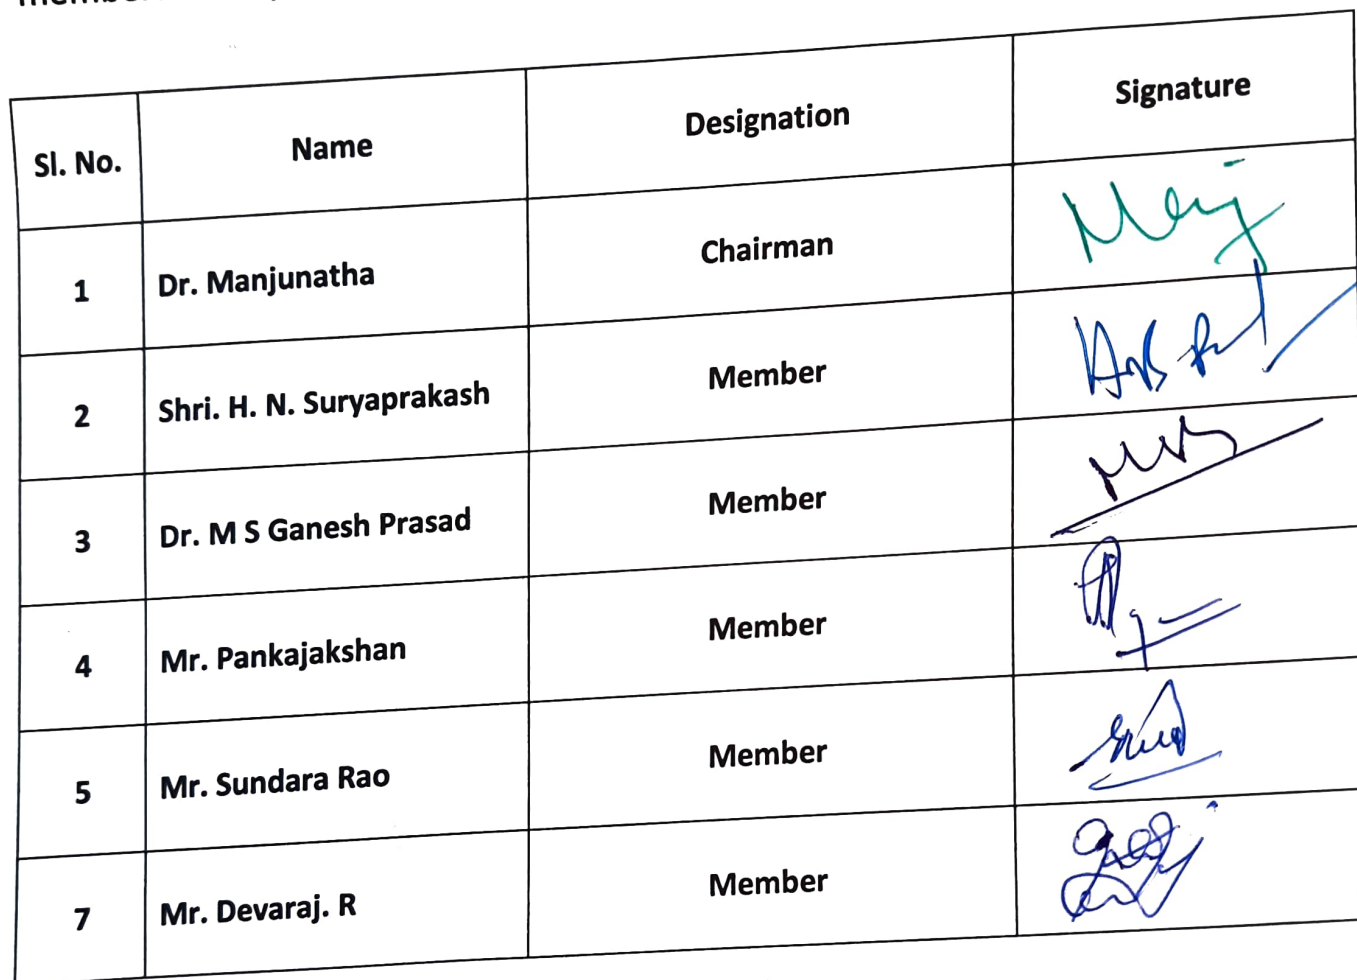 Sl. No. Name Designation Signature
1 Dr. Manjunatha Chairman
2 Shri. H. N. Suryaprakash Member
3 Dr. M S Ganesh Prasad Member
4 Mr. Pankajakshan Member
5 Mr. Sundara Rao Member
7 Mr. Devaraj. R Member